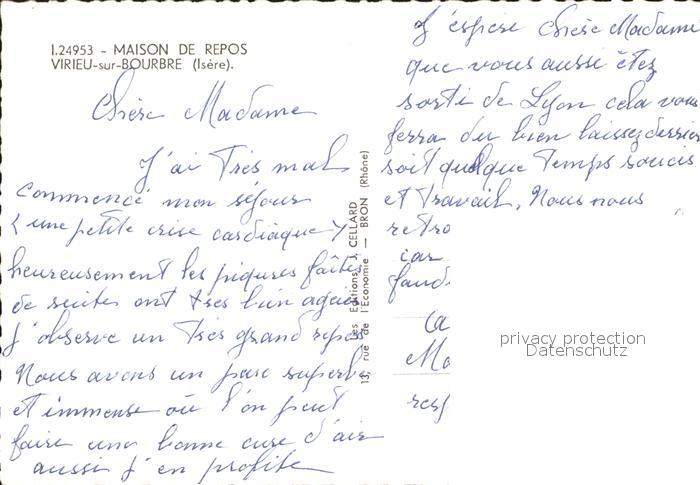 I.24953 - MAISON DE REPOS
VIRIEU-sur-BOURBRE (Isère).
Chère Madame
J'ai Très mal
commencé mon séjour
(une petite crise cardiaque)
heureusement les piqures faites
de suites ont très bien agies
j'observe un Très grand repos
Nous avons un parc superbe
et immense où l'on peut
faire une bonne cure d'air
aussi j'en profite
Les Editions J. CELLARD
13, rue de l'Economie — BRON (Rhône)
J'espère Chère Madame
que vous aussi êtez
sorti de Lyon cela vous
ferra du bien laissez derrière
soit quelque Temps soucis
et Travail, Nous nous
retro
car
faud
Ca
Ma
resp
privacy protection
Datenschutz